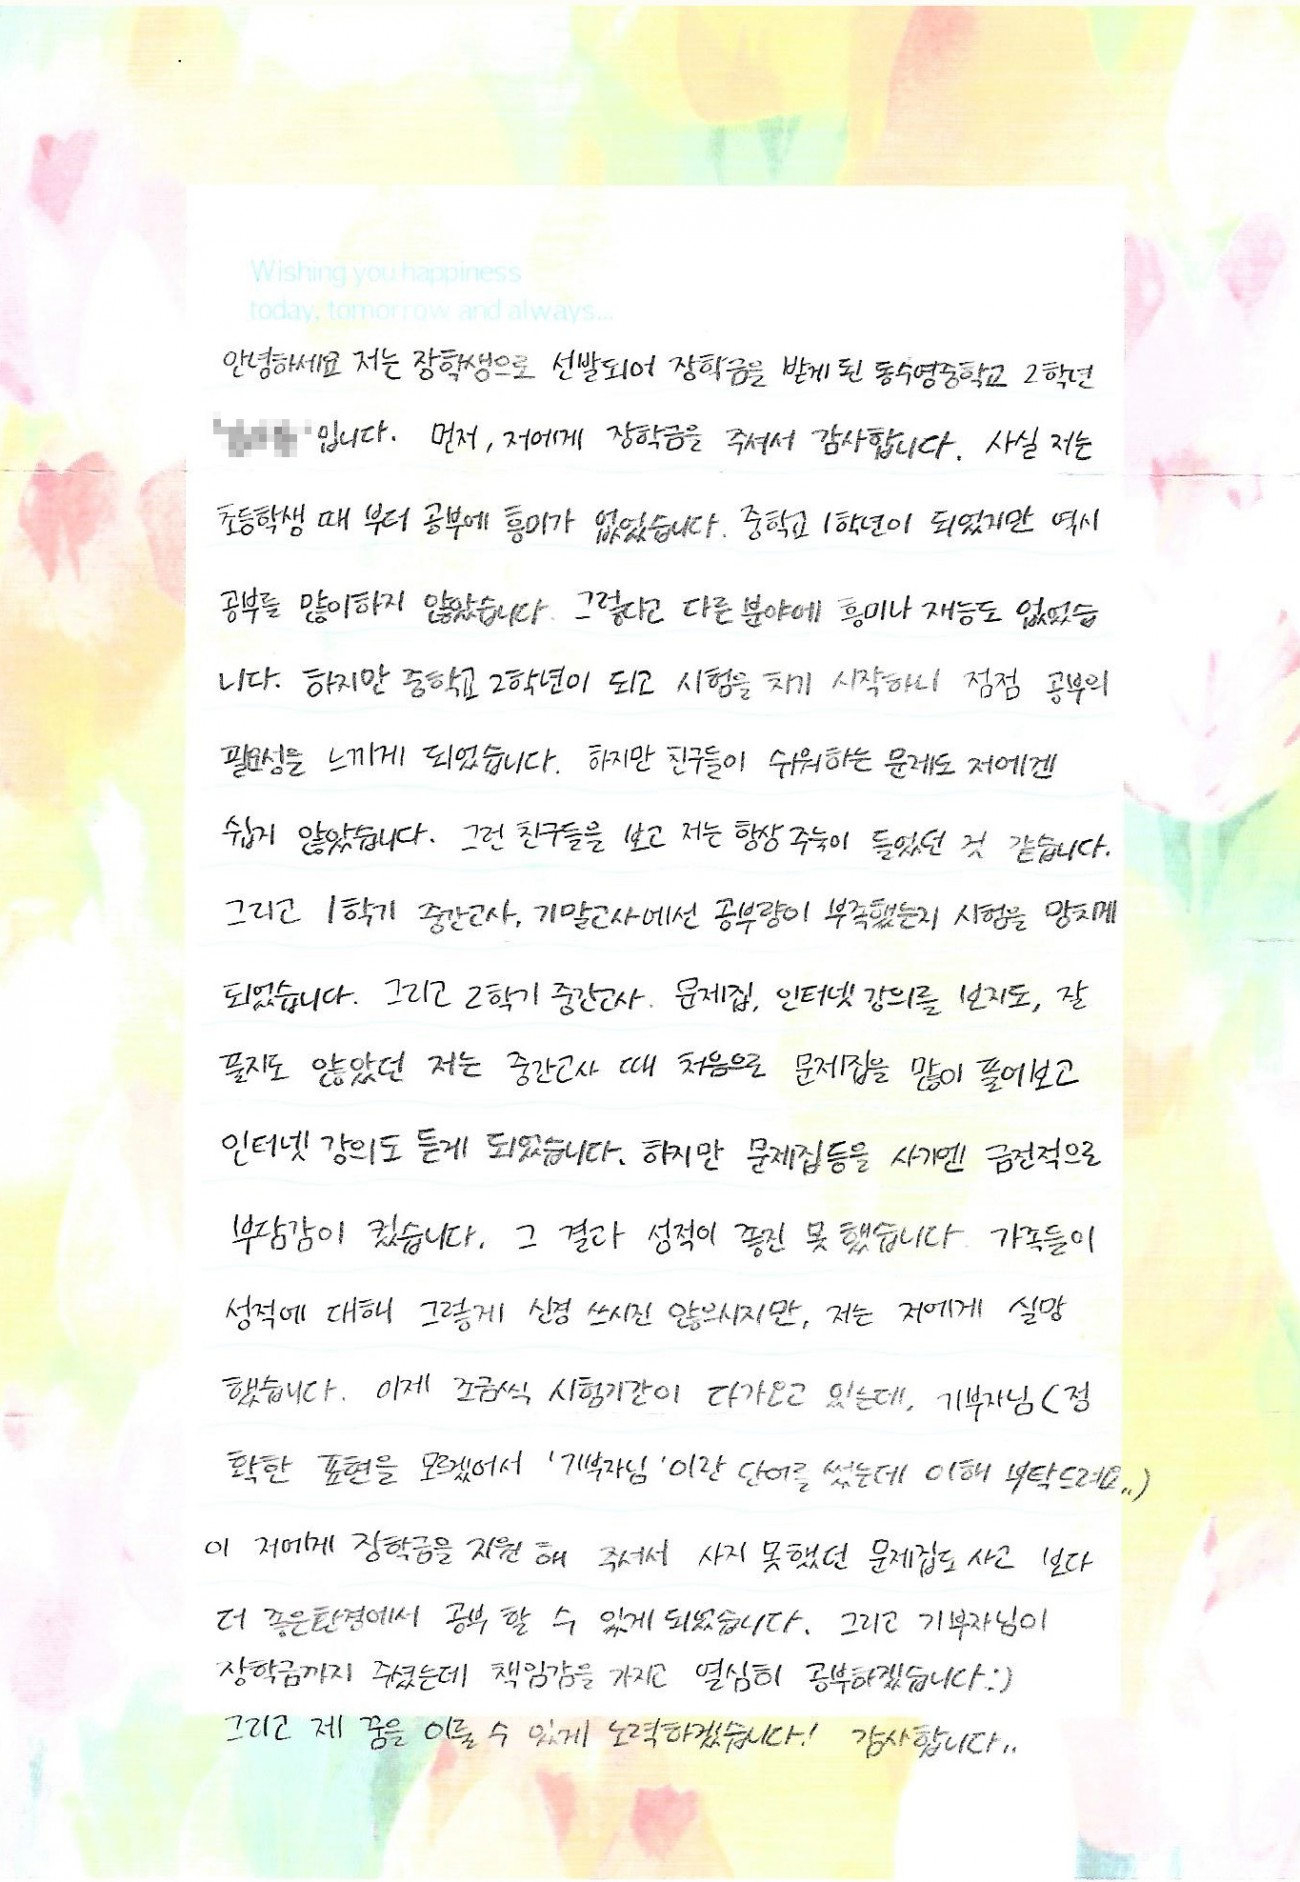 Wishing you happiness
today, tomorrow and always...
안녕하세요 저는 장학생으로 선발되어 장학금을 받게 된 동수영중학교 2학년
' '입니다. 먼저, 저에게 장학금을 주셔서 감사합니다. 사실 저는
초등학생 때 부터 공부에 흥미가 없었습니다. 중학교 1학년이 되었지만 역시
공부를 많이하지 않았습니다. 그렇다고 다른 분야에 흥미나 재능도 없었습
니다. 하지만 중학교 2학년이 되고 시험을 치기 시작하니 점점 공부의
필요성을 느끼게 되었습니다. 하지만 친구들이 쉬워하는 문제도 저에겐
쉽지 않았습니다. 그런 친구들을 보고 저는 항상 주눅이 들었던 것 같습니다.
그리고 1학기 중간고사, 기말고사에선 공부량이 부족했는지 시험을 망치게
되었습니다. 그리고 2학기 중간고사. 문제집, 인터넷 강의를 보지도, 잘
풀지도 않았던 저는 중간고사 때 처음으로 문제집을 많이 풀어보고
인터넷 강의도 듣게 되었습니다. 하지만 문제집등을 사기엔 금전적으로
부담감이 컸습니다. 그 결과 성적이 좋진 못했습니다. 가족들이
성적에 대해 그렇게 신경 쓰시진 않으시지만, 저는 저에게 실망
했습니다. 이제 조금씩 시험기간이 다가오고 있는데, 기부자님(정
확한 표현을 모르겠어서 '기부자님'이란 단어를 썼는데 이해 부탁드려요..)
이 저에게 장학금을 지원 해 주셔서 사지 못했던 문제집도 사고 보다
더 좋은환경에서 공부 할 수 있게 되었습니다. 그리고 기부자님이
장학금까지 주셨는데 책임감을 가지고 열심히 공부하겠습니다:)
그리고 제 꿈을 이룰 수 있게 노력하겠습니다! 감사합니다..